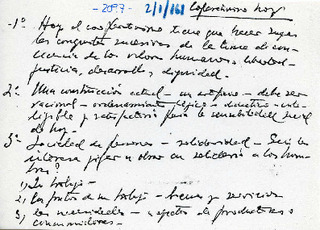 - 2097 - 2/1/161 Cooperativismo hoy
-1º Hoy el cooperativismo tiene que hacer suyas
las conquistas sucesivas de la toma de con-
ciencia de los valores humanos, libertad-
justicia, desarrollo y dignidad.-
2º- Una construcción actual - un artefacto - debe ser
racional - ordenamiento lógico - directivo - inte-
ligible y satisfactorio para la sensibilidad social
de hoy.-
3º- Sociedad de personas - solidaridad -
interesa fijar u obrar en solidario a los hom-
bres?
1, Su trabajo -
2, los frutos de su trabajo - bienes y servicios
3, las necesidades - aspectos de productores o
consumidores.-